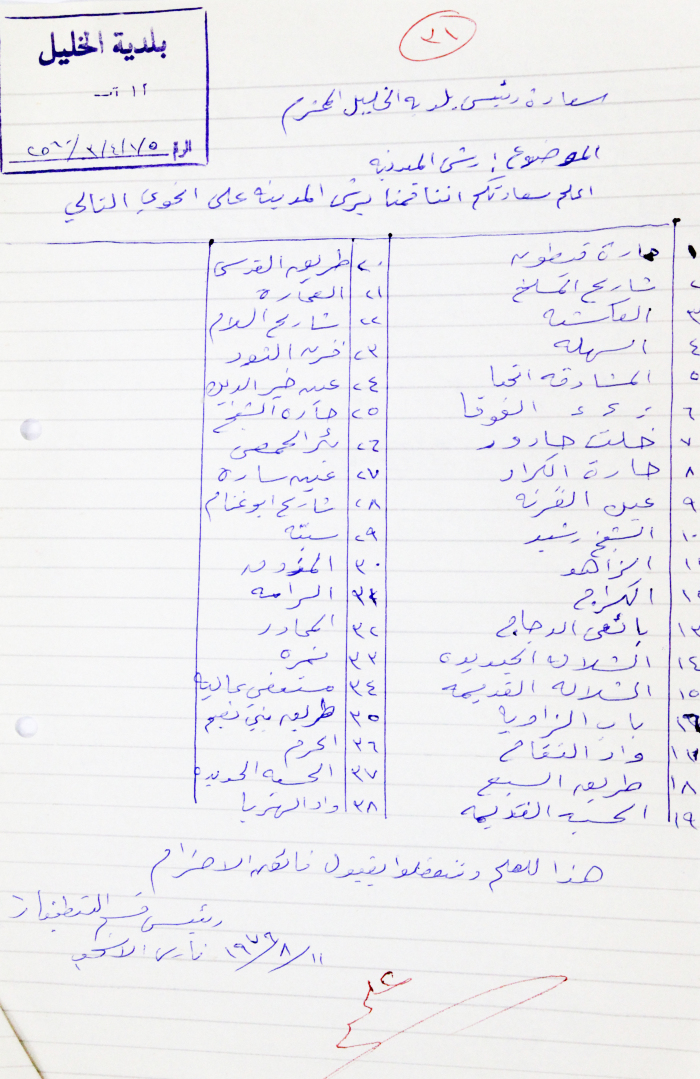 ٣١
بلدية الخليل
الرقم ٢٥٦٦/٣/٤/٧/٥
سعادة رئيس بلدية الخليل المحترم
الموضوع: رش المدينة
اعلم سعادتكم اننا قمنا برش المدينه على النحوي التالي
١ حارة قيطون
٢ شارع المسلخ
٣ العكشيه
٤ السهله
٥ المشارقه التحتا
٦ = = الفوقا
٧ خلت حارور
٨ حارة الكراد
٩ عين القرنه
١٠ الشيخ رشيد
١١ الزاهد
١٢ الكراج
١٣ بائعي الدجاج
١٤ الشلاله الجديده
١٥ الشلاله القديمه
١٦ باب الزاويه
١٧ واد التفاح
١٨ طريق السبع
١٩ الحسبه القديمه
٢٠ طريق القدس
٢١ العماره
٢٢ شارع السلام
٢٣ خربة
٢٤ عين خير الدين
٢٥ حارة الشيخ
٢٦ بئر الحمص
٢٧ عين ساره
٢٨ شارع ابو غنام
٢٩ سبته
٣٠
٣١ الرامه
٣٢ المحاور
٣٣ نمره
٣٤ مستشفى عاليه
٣٥ طريق بني نعيم
٣٦ الحرم
٣٧ الحسبه الجديده
٣٨ واد الهريا
هذا للعلم وتفضلوا بقبول فائق الاحترام
رئيس قسم التنظيفات
١٩٧٩/٨/١١